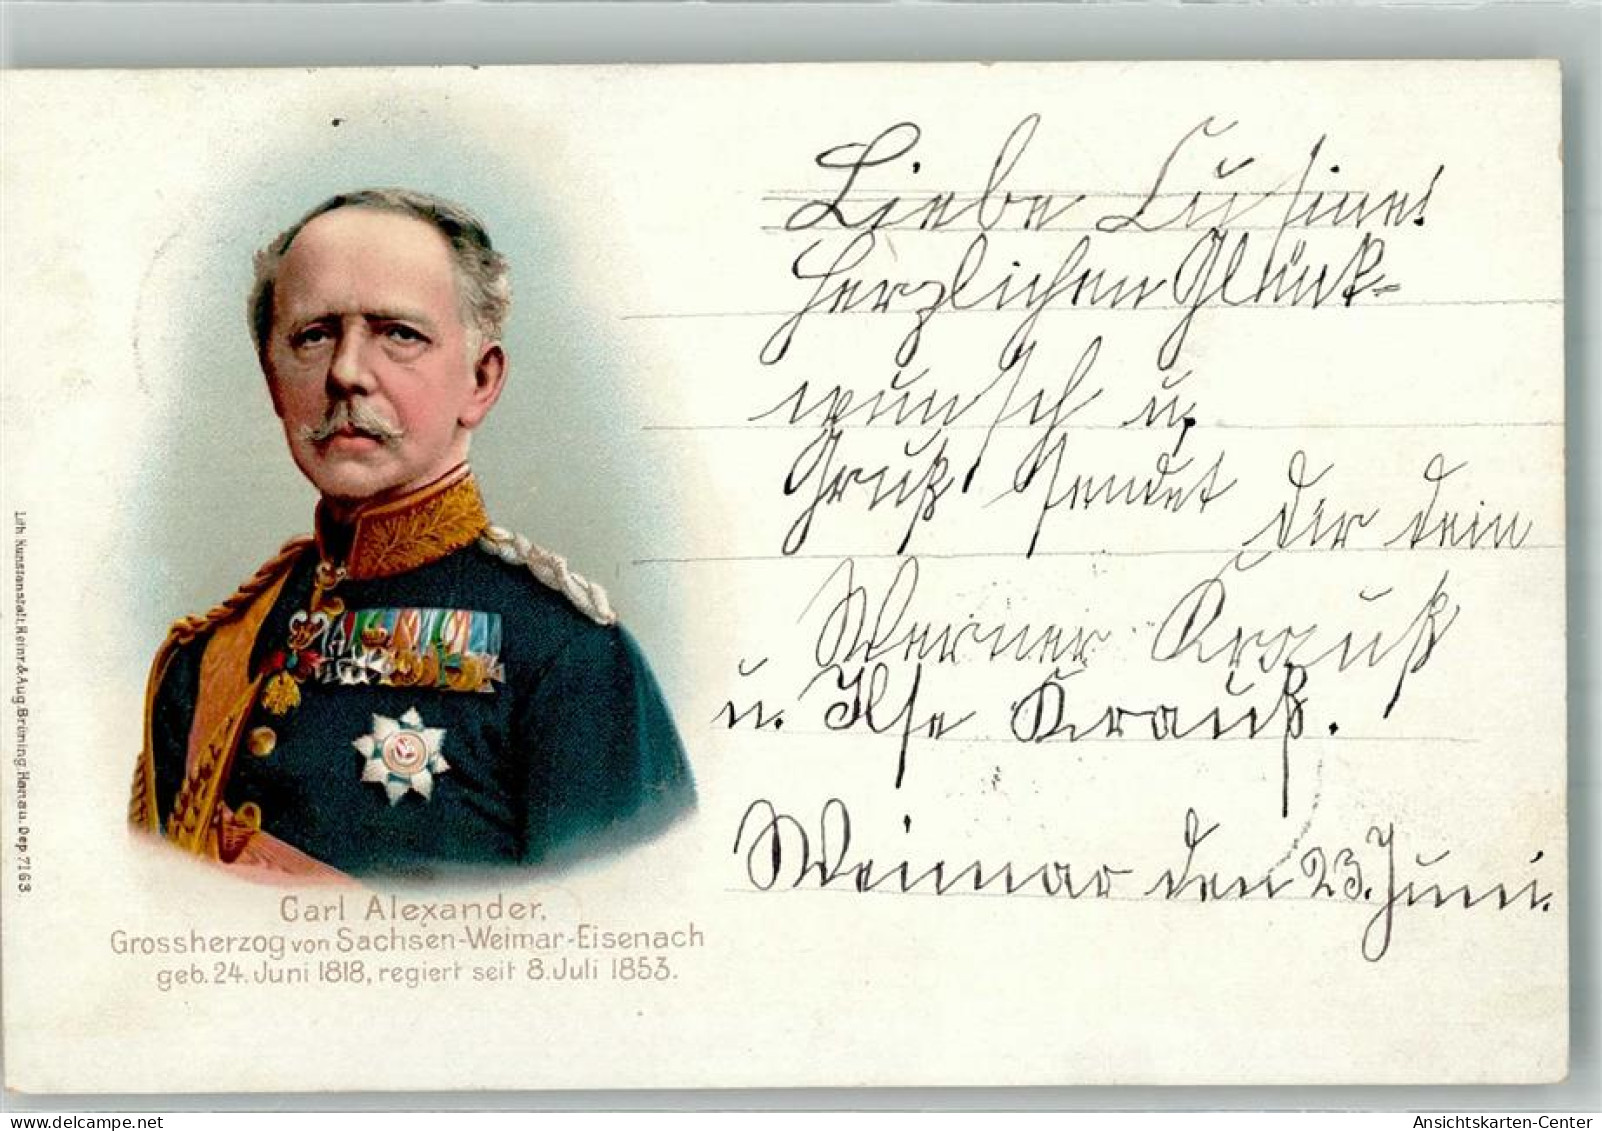 Liebe Cusine!
Herzlichen Glück-
wunsch u.
Gruß sendet dir dein
Werner Krauß
u. Ilse Krauß.
Weimar den 23. Juni.
Carl Alexander.
Grossherzog von Sachsen-Weimar-Eisenach
geb. 24. Juni 1818, regiert seit 8. Juli 1853.
Lith. Kunstanstalt Heinr. & Aug. Brüning, Hanau. Dep 7163.
Ansichtskarten-Center